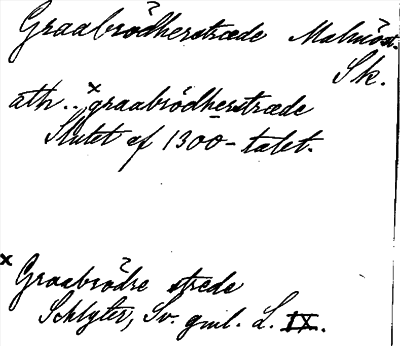 Graabrödherstræde Malmöst.
Sk.
ath.. ×graabrödherstræde
Slutet af 1300-talet.
× Graabrödre strede
Schlyter, Sv. gml. L. IX.